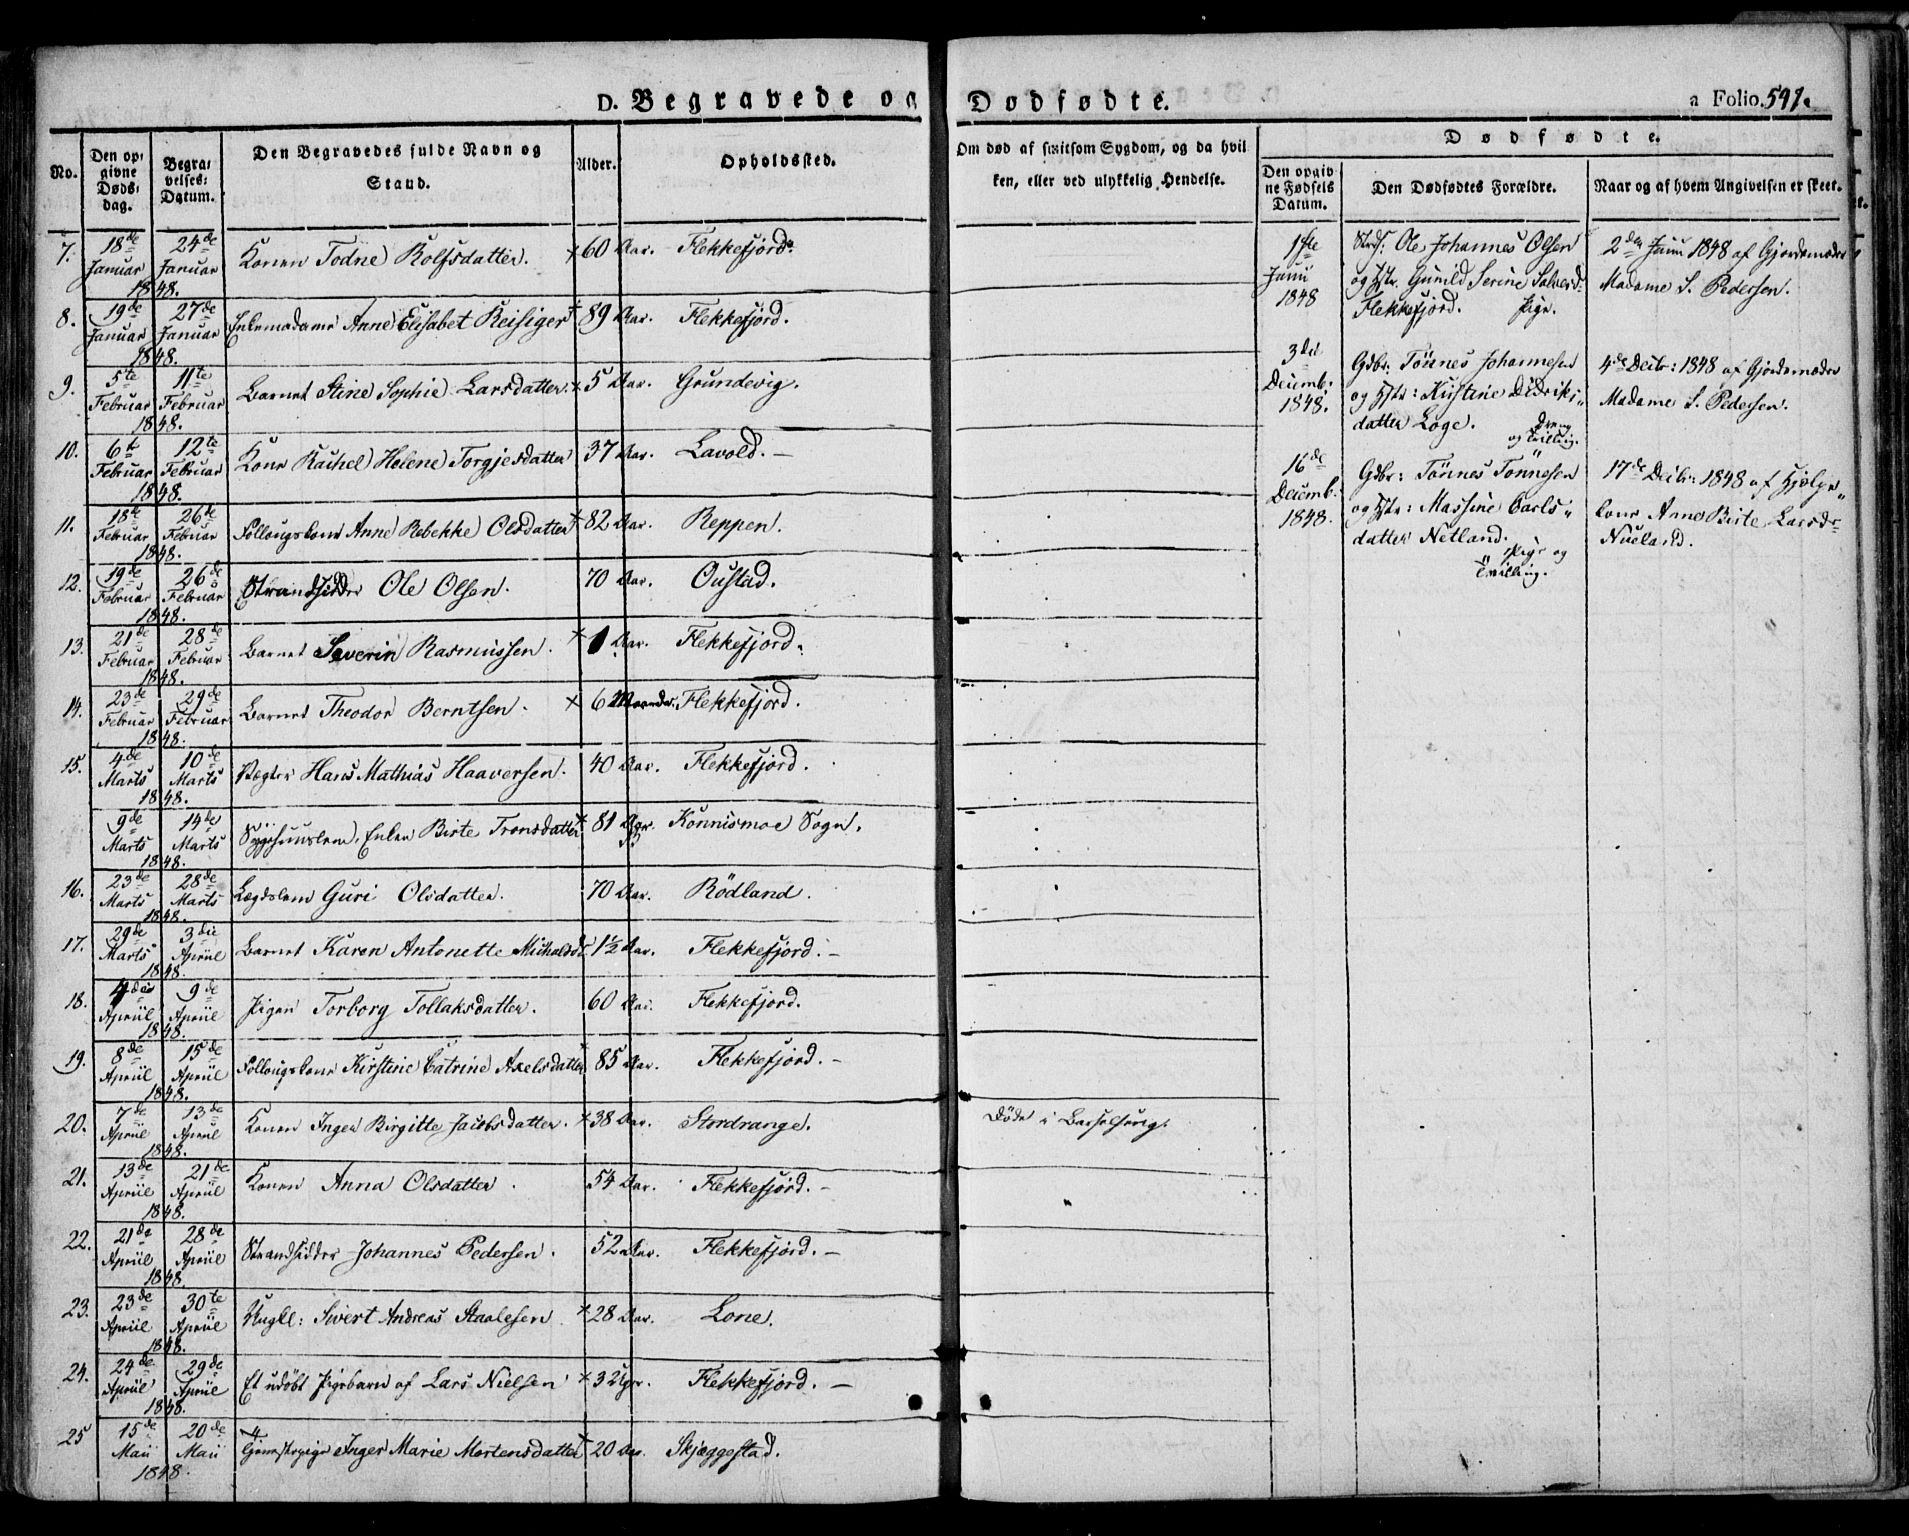 D. Begravede og Dødfødte.
a Folio. 591.
No.
Den opgivne Dødsdag.
Begravelses Datum.
Den Begravedes fulde Navn og Stand.
Alder.
Opholdssted.
Om død af smitsom Sygdom, og da hvilken, eller ved ulykkelig Hendelse.
Dødfødte.
Den opgivne Fødsels Datum.
Den Dødfødtes Forældre.
Naar og af hvem Angivelsen er skeet.
7. 18de Januar 24de Januar 1848. Konen Todne Rolfsdatter. 60 Aar. Flekkefjord.
8. 19de Januar 27de Januar 1848. Enkemadame Anne Elisabet Reisiger 89 Aar. Flekkefjord.
9. 5te Februar 11te Februar 1848. Barnet Stine Sophie Larsdatter 5 Aar. Grundevig.
10. 6t Februar 12te Februar 1848. Kone Rachel Helene Torgjesdatter 37 Aar. Lavold. –
11. 18de Februar 26de Februar 1848. Follougskone Anne Rebekke Olsdatter 82 Aar. Reppen.
12. 19de Februar 26de Februar 1848. Strandsidder Ole Olsen. 70 Aar. Oustad.
13. 21de Februar 28de Februar 1848. Barnet Severin Rasmussen. 1 Aar. Flekkefjord.
14. 23de Februar 29de Februar 1848. Barnet Theodor Berntsen. 6 Maaneder. Flekkefjord.
15. 4de Marts 10de Marts 1848. Vægter Hans Mathias Haaversen. 40 Aar. Flekkefjord.
9de Marts 14de Marts 1848. Enken Birte Tronsdatter 81 Aar. Konnismoe Sogn.
16. 23de Marts 28de Marts 1848. Lægdslem Guri Olsdatter. 70 Aar. Rödland.
17. 29de Marts 3die Apriil 1848. Barnet Karen Antonette Michalsdr. 1½ Aar. Flekkefjord. –
18. 4de Apriil 9de Apriil 1848. Pigen Torborg Tollaksdatter. 60 Aar. Flekkefjord.
19. 8de Apriil 15de Apriil 1848. Follougskone Kirstine Catrine Axelsdatter 85 Aar. Flekkefjord. –
20. 7de Apriil 13de Apriil 1848. Konen Inger Birgitte Jacobsdatter. 38 Aar. Stordrange. Døde i Barselseng.
21. 13de Apriil 21de Apriil 1848. Konen Anna Olsdatter. 54 Aar. Flekkefjord. –
22. 21de Apriil 28de Apriil 1848. Strandsidder Johannes Pedersen. 52 Aar. Flekkefjord. –
23. 23de Apriil 30te Apriil 1848. Ungkl: Sivert Andreas Staalesen 28 Aar. Lone.
24. 24de Apriil 29de Apriil 1848. Et udöbt Pigebarn af Lars Nielsen 3 Uger. Flekkefjord. –
25 15de Maii 20de Maii 1848. Inger Marie Mortensdatter 20 Aar. Skjæggestad.
1ste Juni 1848
Strds: Ole Johannes Olsen
og Hstr. Gunild Serine Salvesd.
Flekkefjord. Pige.
2den Juni 1848 af Gjordemoder
Madame S. Pedersen.
3die Decemb: 1848.
Gdbr: Tönnes Johannesen
og Hstr: Kirstine Didriks„
datter Loge. Dreng
og Tvilling.
4de Decbr: 1848 af Gjordemoder
Madame S. Pedersen.
16de Decemb. 1848.
Gdbr: Tönnes Tönnesen
og Hstr: Massine Carls„
datter Netland. Pige og
Tvilling.
17de Decbr: 1848 af Hjelpe„
kone Anne Birte Larsdr.
Nueland.